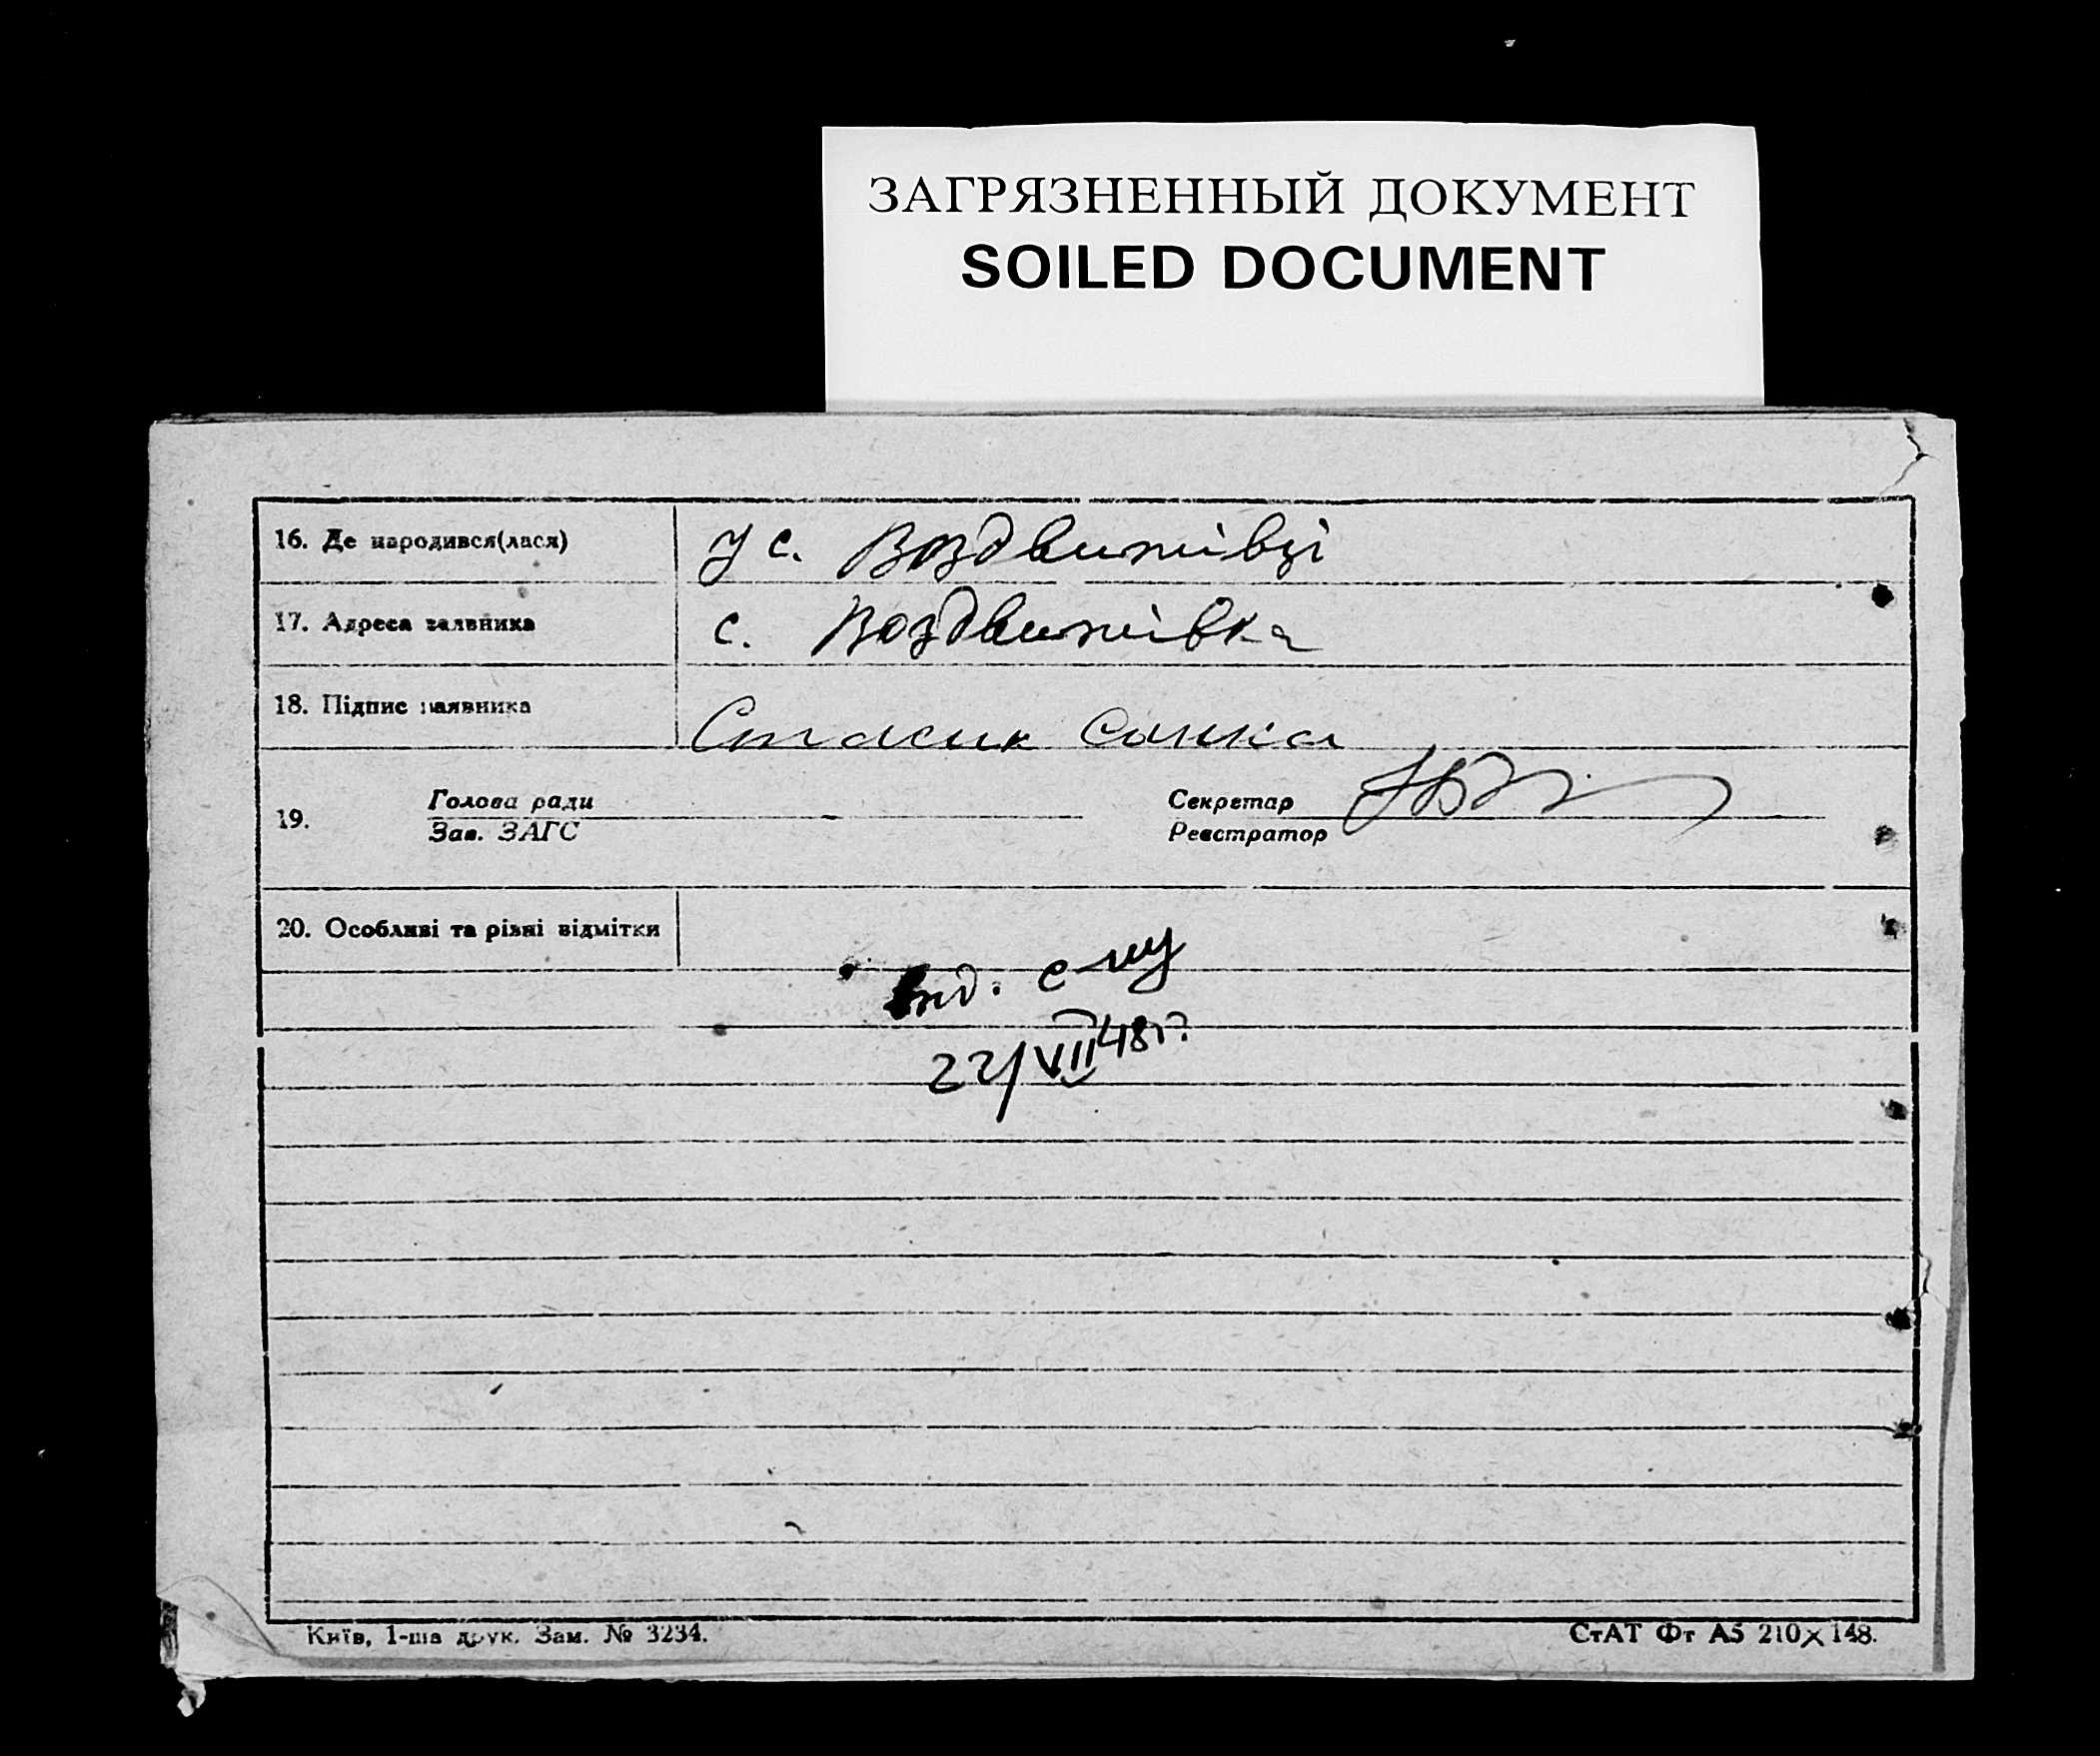 ЗАГРЯЗНЕННЫЙ ДОКУМЕНТ
SOILED DOCUMENT
16. Де народився(лася) у с. Воздвижівці
17. Адреса заявника с. Воздвижівка
18. Підпис заявника Стасик
19. Голова ради Секретар
Зав. ЗАГС Реєстратор
20. Особливі та різні відмітки
22/VII 48 г.
Київ, 1-ша друк. Зам. № 3234. СтАТ Фт А5 210×148.